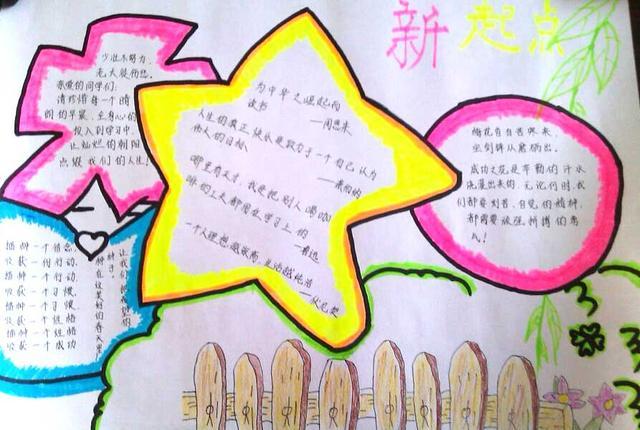 新起点
少壮不努力，
老大徒伤悲。
亲爱的同学们：
请珍惜每一个晴
朗的早晨，全身心的
投入到学习中，
让灿烂的朝阳
点缀我们的人生！
为中华之崛起而
读书
——周恩来
人生的真正快乐是致力于一个自己认为
伟大的目标。
哪里有天才，我是把别人喝咖
啡的工夫都用在学习上的
——鲁迅
一个人理想越崇高，生活越纯洁
——伏尼契
梅花香自苦寒来，
宝剑锋从磨砺出。
成功之花是辛勤的汗水
浇灌出来的，无论何时，我
们都要刻苦、自觉的精神，
都需要顽强拼搏的勇
气！
播种一个信念，
收获一份行动，
播种一个行动，
收获一个习惯，
播种一个习惯，
收获一个性格
播种一个性格
收获一个成功